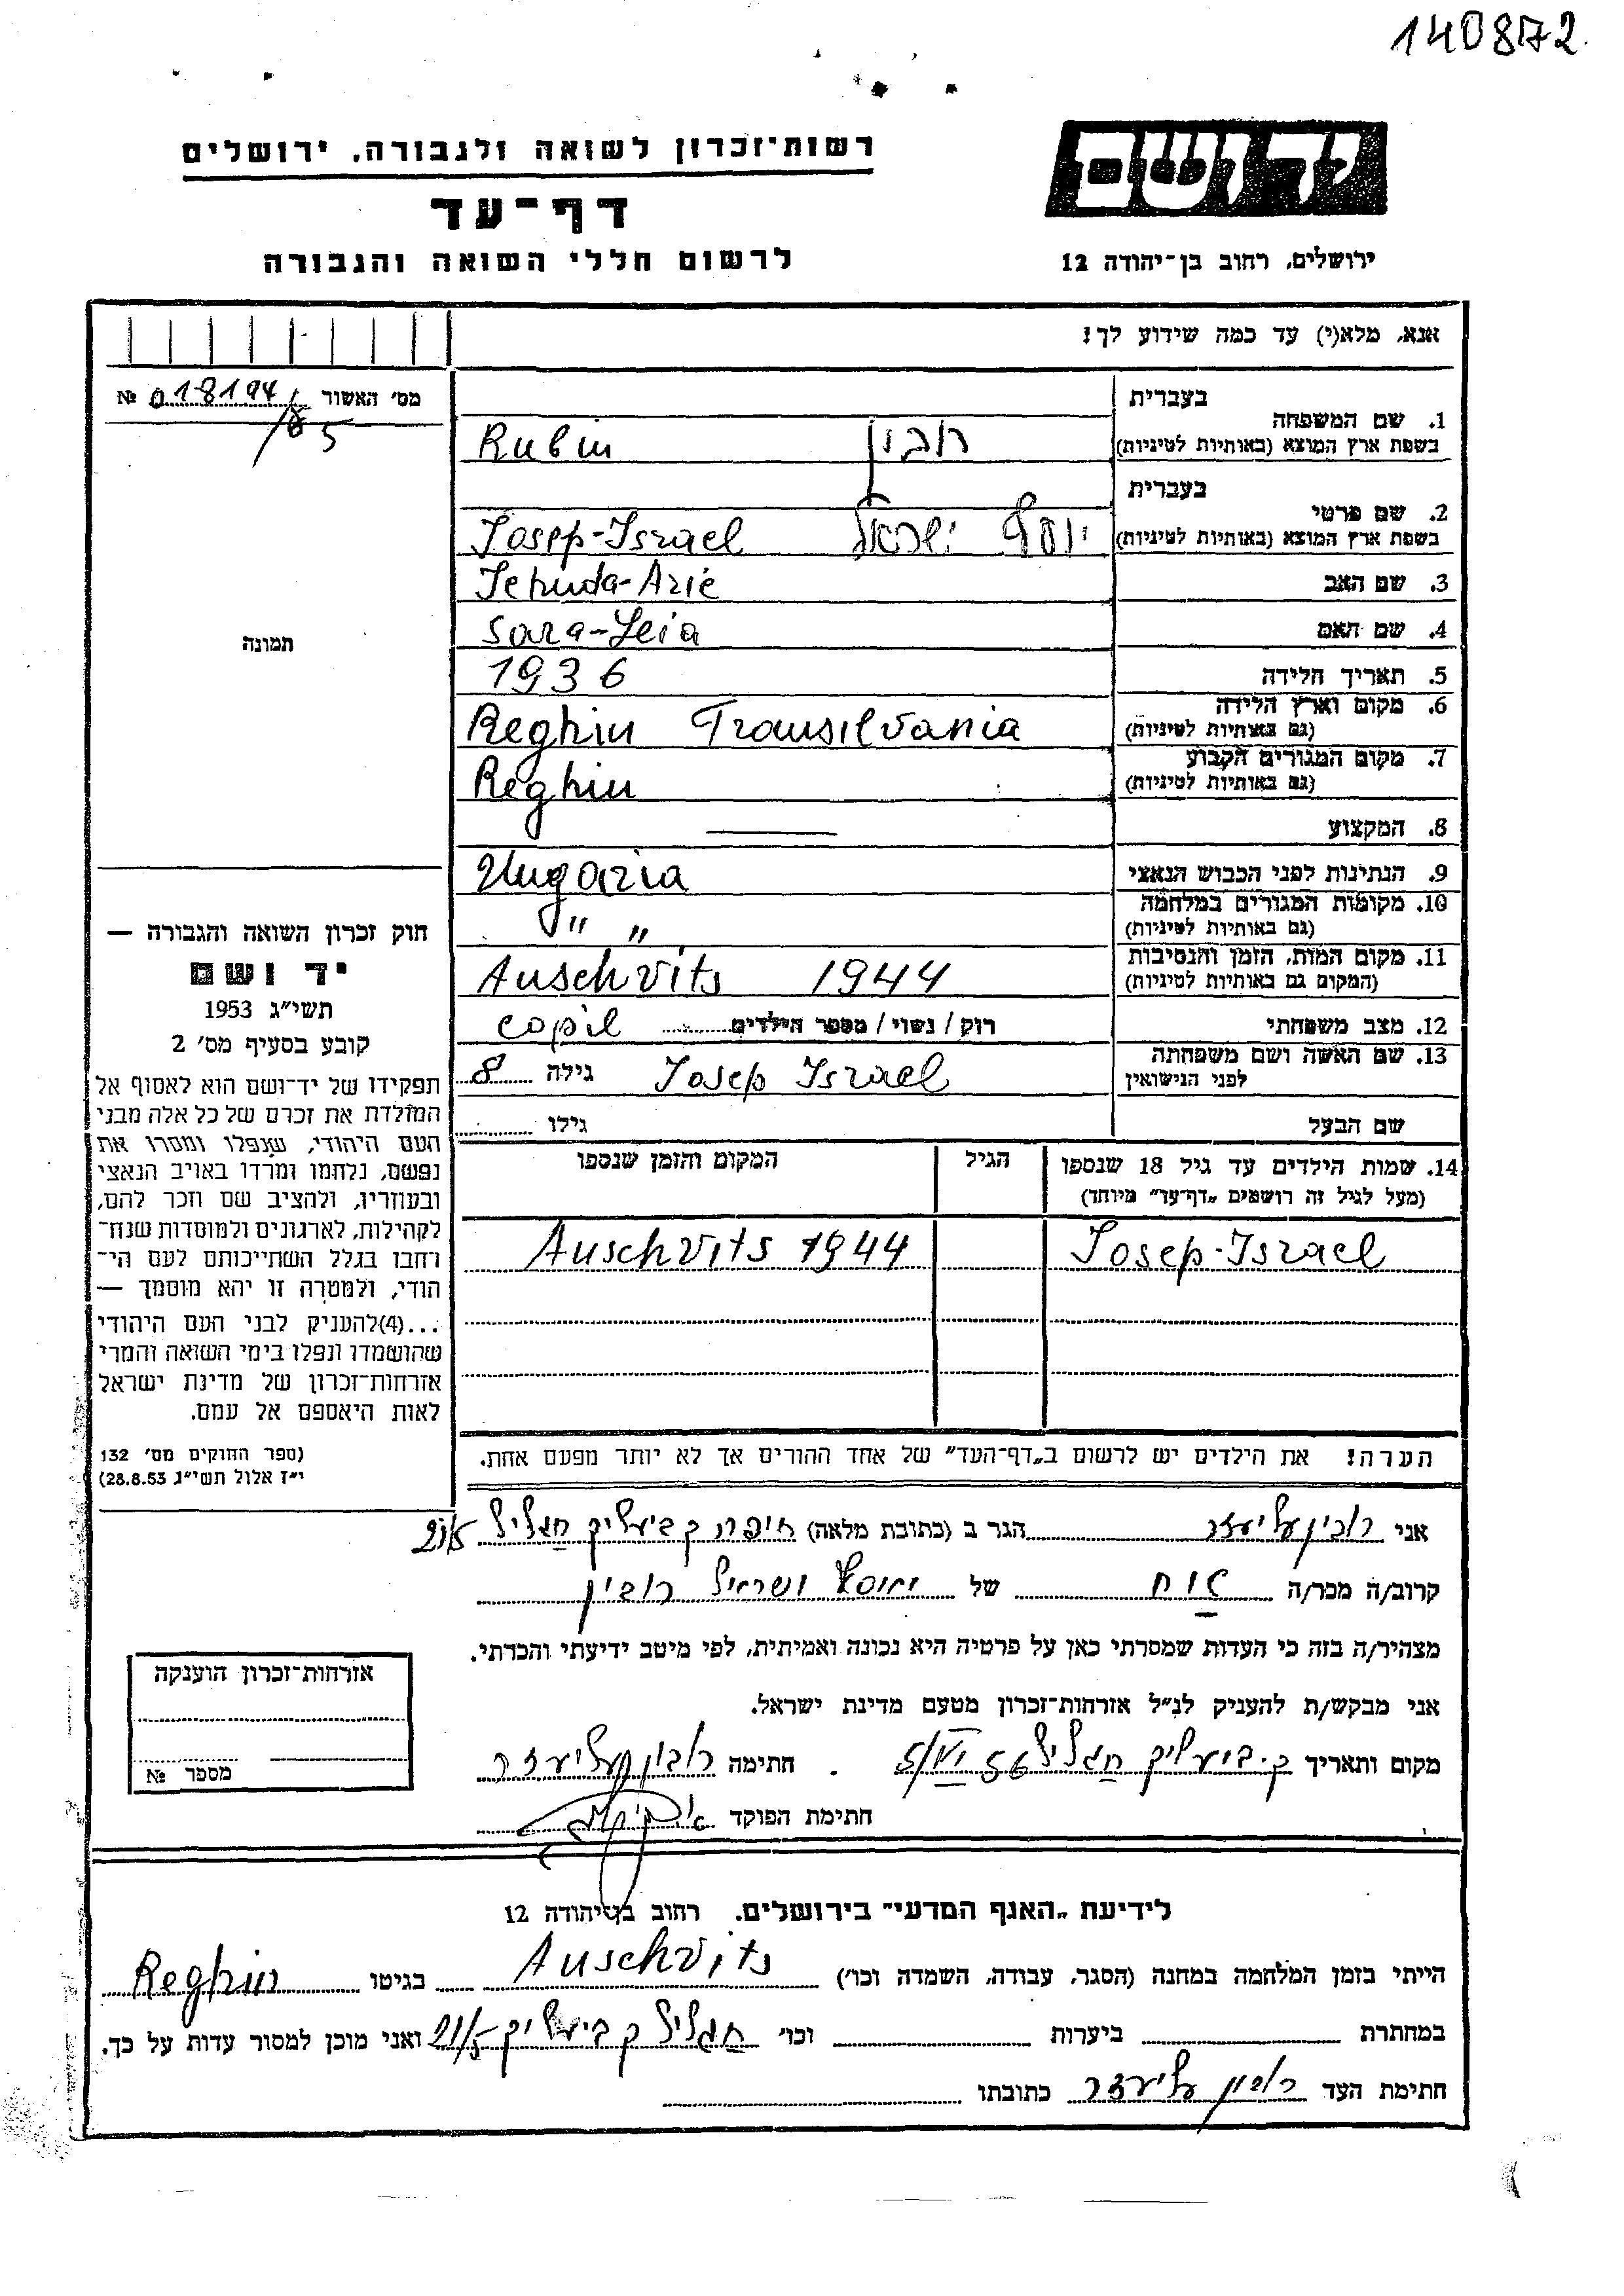 140872
רשות־זכרון לשואה ולגבורה, ירושלים
יד ושם
דף־עד
לרשום חללי השואה והגבורה
ירושלים, רחוב בן־יהודה 12
אנא, מלא(י) עד כמה שידוע לך!
מס׳ האשור № 018194/85
1. שם המשפחה
בעברית
בשפת ארץ המוצא (באותיות לטיניות)
Rubin רובין
2. שם פרטי
בעברית
בשפת ארץ המוצא (באותיות לטיניות)
Iosep-Israel יוסף ישראל
3. שם האב
Iehuda-Arie
4. שם האם
Sara-Leia
5. תאריך הלידה
1936
6. מקום וארץ הלידה
(גם באותיות לטיניות)
Reghin Transilvania
7. מקום המגורים הקבוע
(גם באותיות לטיניות)
Reghin
8. המקצוע
9. הנתינות לפני הכבוש הנאצי
Ungaria
10. מקומות המגורים במלחמה
(גם באותיות לטיניות)
" "
11. מקום המות, הזמן והנסיבות
(המקום גם באותיות לטיניות)
Auschvits 1944
12. מצב משפחתי
רוק / נשוי / מספר הילדים copil
13. שם האשה ושם משפחתה
לפני הנישואין
Iosep Israel גילה 8
שם הבעל
גילו
14. שמות הילדים עד גיל 18 שנספו
(מעל לגיל זה רושמים „דף־עד" מיוחד)
הגיל
המקום והזמן שנספו
Iosep-Israel Auschvits 1944
הערה! את הילדים יש לרשום ב„דף־העד" של אחד ההורים אך לא יותר מפעם אחת.
תמונה
חוק זכרון השואה והגבורה —
יד ושם
תשי״ג 1953
קובע בסעיף מס׳ 2
תפקידו של יד־ושם הוא לאסוף אל
המולדת את זכרם של כל אלה מבני
העם היהודי, שנפלו ומסרו את
נפשם, נלחמו ומרדו באויב הנאצי
ובעוזריו, ולהציב שם וזכר להם,
לקהילות, לארגונים ולמוסדות שנח־
רחבו בגלל השתייכותם לעם הי־
הודי, ולמטרה זו יהא מוסמך —
...(4)להעניק לבני העם היהודי
שהושמדו ונפלו בימי השואה והמרי
אזרחות־זכרון של מדינת ישראל
לאות היאספם אל עמם.
(ספר החוקים מס׳ 132
י״ז אלול תשי״ג 28.8.53)
אני רובין אליעזר הגר ב (כתובת מלאה) חיפה ק ביאליק הגליל 21/5
קרוב/ה מכר/ה אח של יוסף ישראל רובין
מצהיר/ה בזה כי העדות שמסרתי כאן על פרטיה היא נכונה ואמיתית, לפי מיטב ידיעתי והכרתי.
אני מבקש/ת להעניק לנ״ל אזרחות־זכרון מטעם מדינת ישראל.
מקום ותאריך ק. ביאליק הגליל 5/VI 56 חתימה רובין אליעזר
חתימת הפוקד
אזרחות־זכרון הוענקה
מספר №
לידיעת „האגף המדעי" בירושלים. רחוב בן־יהודה 12
הייתי בזמן המלחמה במחנה (הסגר, עבודה, השמדה וכו׳) Auschvits בגיטו Reghin
במחתרת ביערות וכו׳ הגליל ק ביאליק 21/5 ואני מוכן למסור עדות על כך.
חתימת העד רובין אליעזר כתובתו